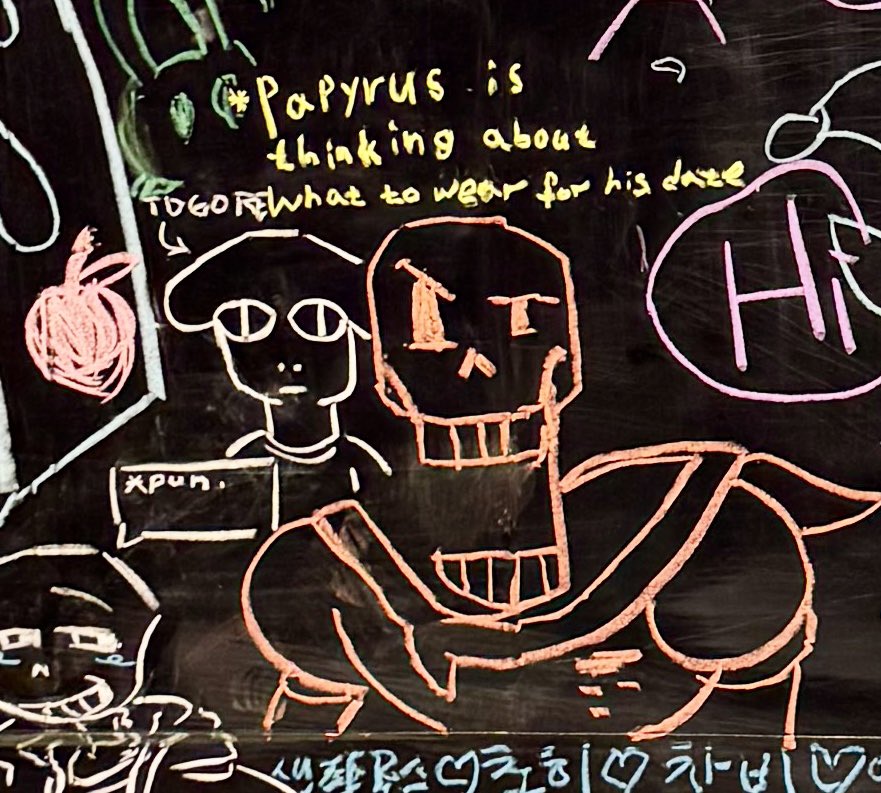 *Papyrus is
thinking about
what to wear for his date
Hi
*pun.
♡초히♡차비♡